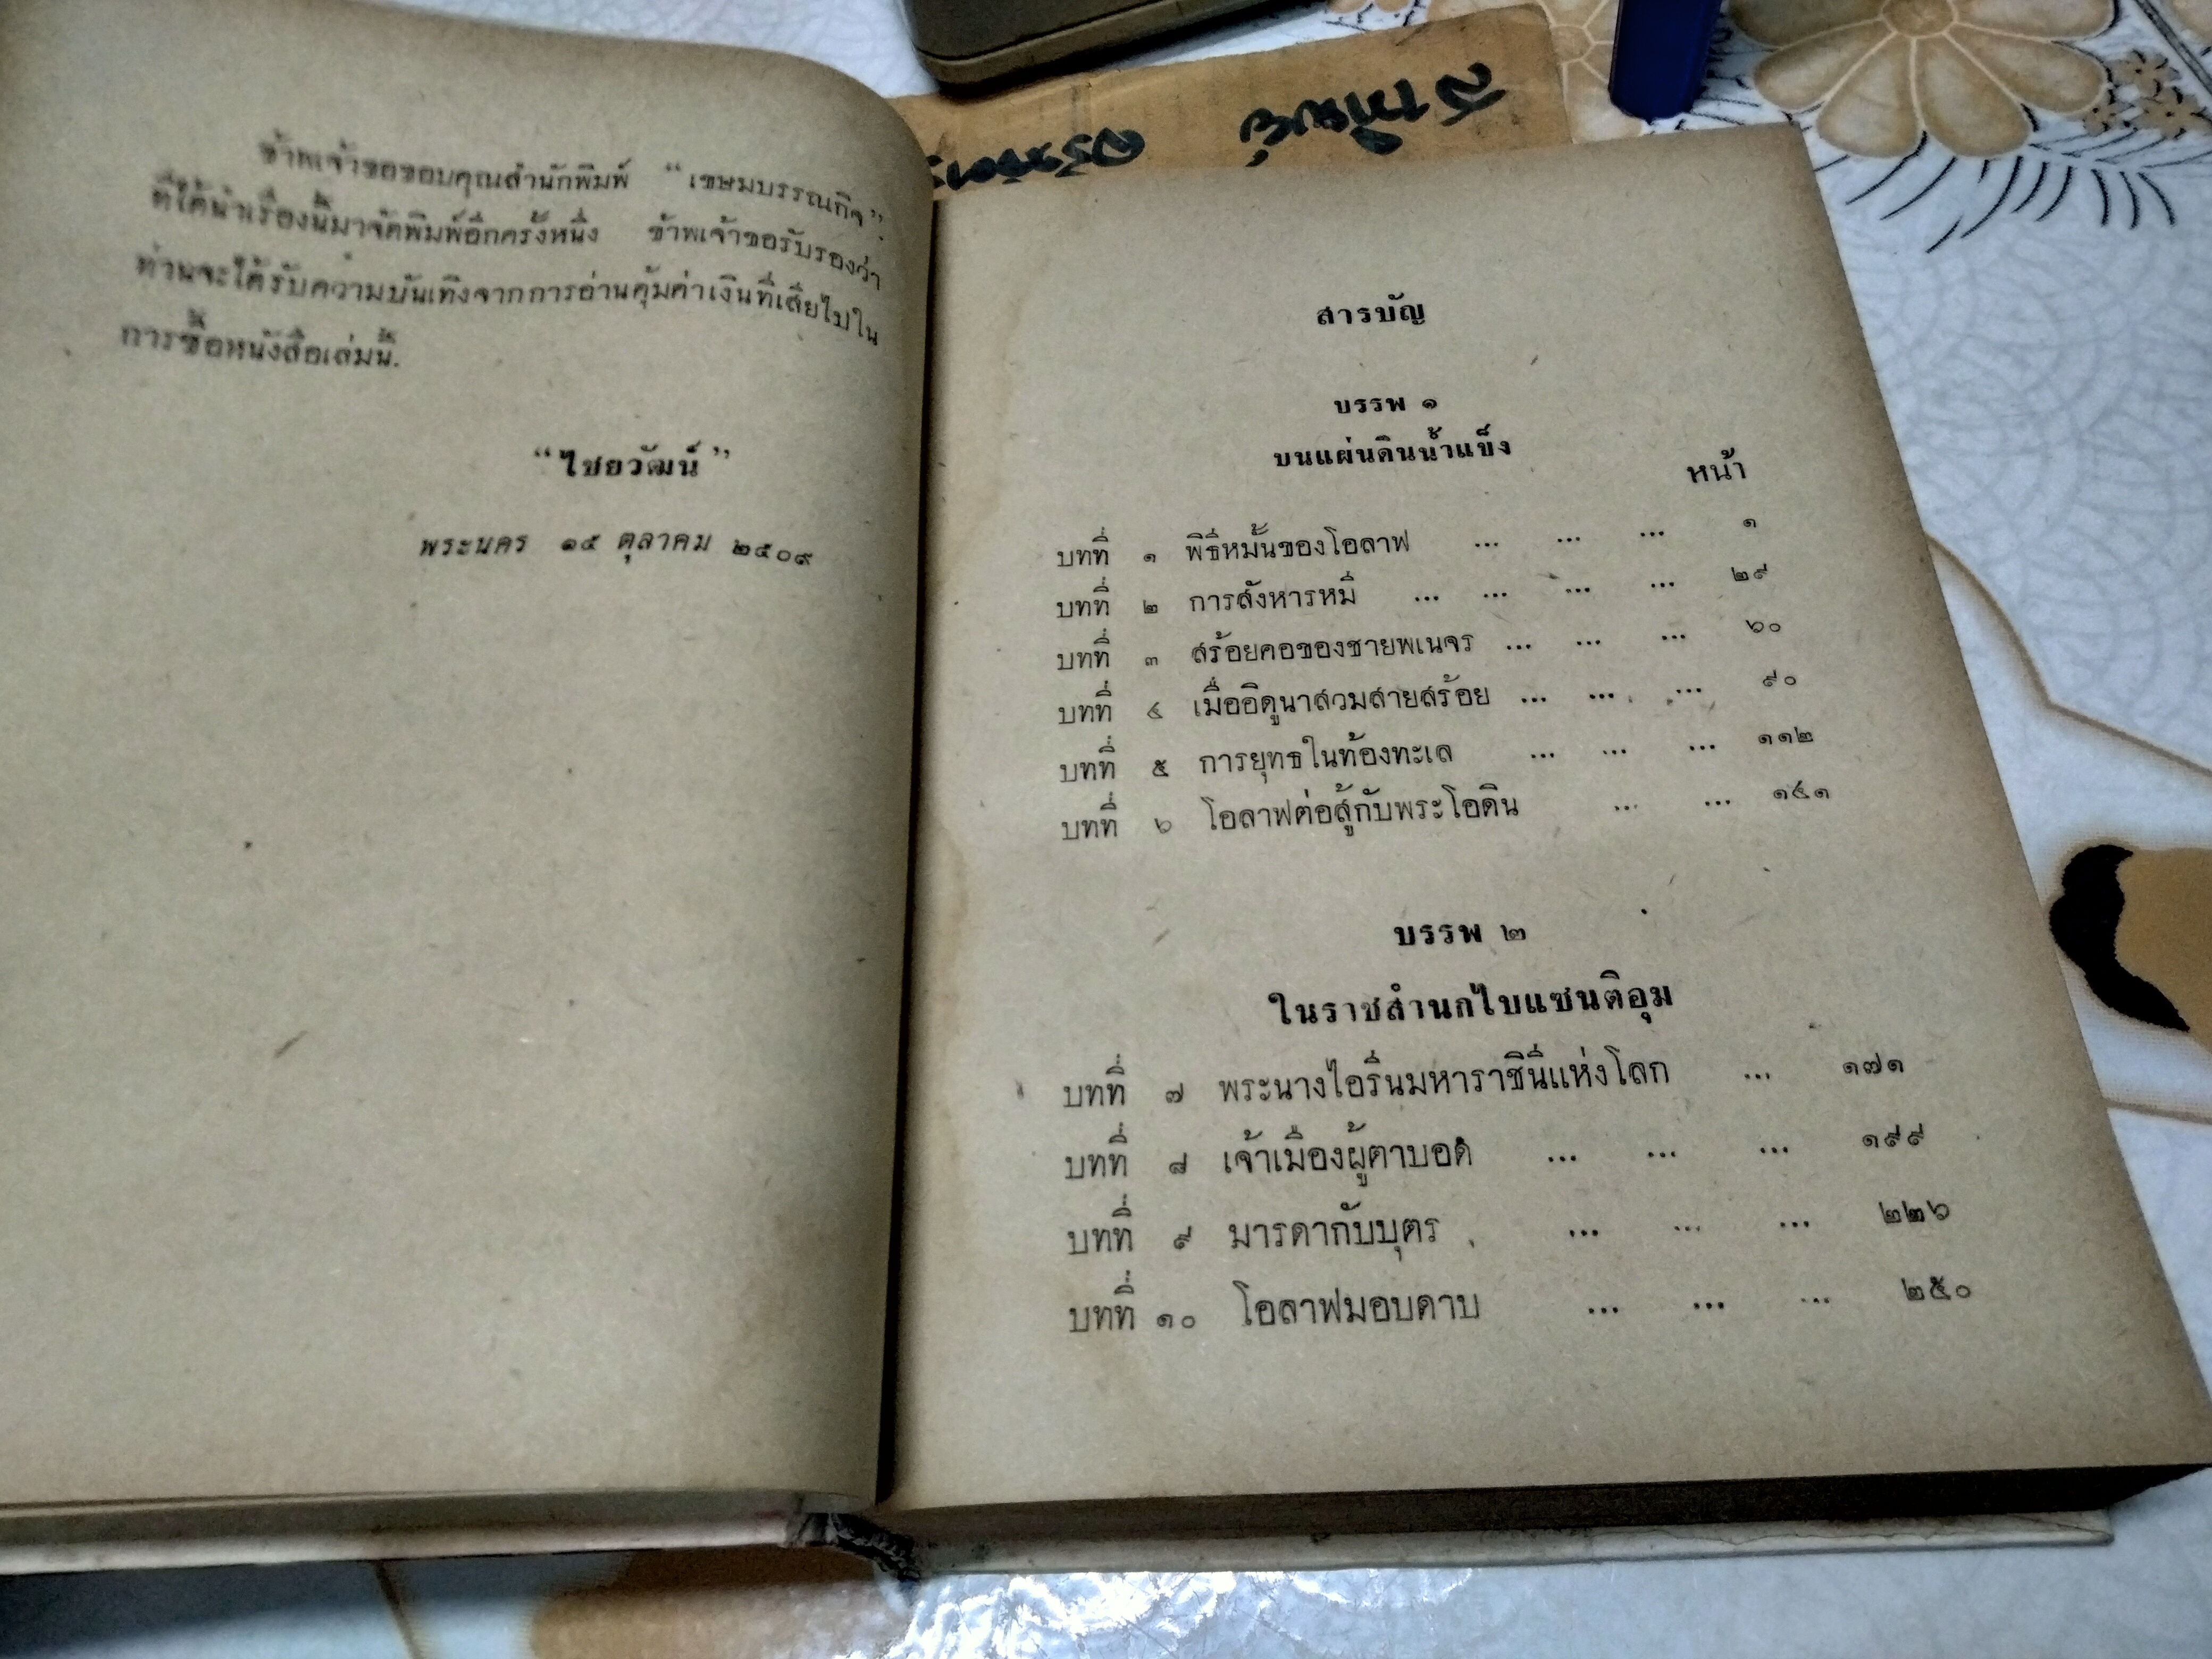 ข้าพเจ้าขอขอบคุณสำนักพิมพ์ “เขษมบรรณกิจ”
ที่ได้นำเรื่องนี้มาจัดพิมพ์อีกครั้งหนึ่ง ข้าพเจ้าขอรับรองว่า
ท่านจะได้รับความบันเทิงจากการอ่านคุ้มค่าเงินที่เสียไปใน
การซื้อหนังสือเล่มนี้.
“ไชยวัฒน์”
พระนคร ๑๕ ตุลาคม ๒๕๐๙
สารบัญ
บรรพ ๑
บนแผ่นดินน้ำแข็ง
หน้า
บทที่ ๑ พิธีหมั้นของโอลาฟ ... ... ... ๑
บทที่ ๒ การสังหารหมี ... ... ... ... ๒๙
บทที่ ๓ สร้อยคอของชายพเนจร ... ... ... ๖๐
บทที่ ๔ เมื่ออิดูนาสวมสายสร้อย ... ... ... ๙๐
บทที่ ๕ การยุทธในท้องทะเล ... ... ... ๑๑๒
บทที่ ๖ โอลาฟต่อสู้กับพระโอดิน ... ... ๑๔๑
บรรพ ๒
ในราชสำนกไบแซนติอุม
บทที่ ๗ พระนางไอรีนมหาราชินีแห่งโลก ... ๑๗๑
บทที่ ๘ เจ้าเมืองผู้ตาบอด ... ... ... ๑๙๙
บทที่ ๙ มารดากับบุตร ... ... ... ๒๒๖
บทที่ ๑๐ โอลาฟมอบดาบ ... ... ... ๒๕๐